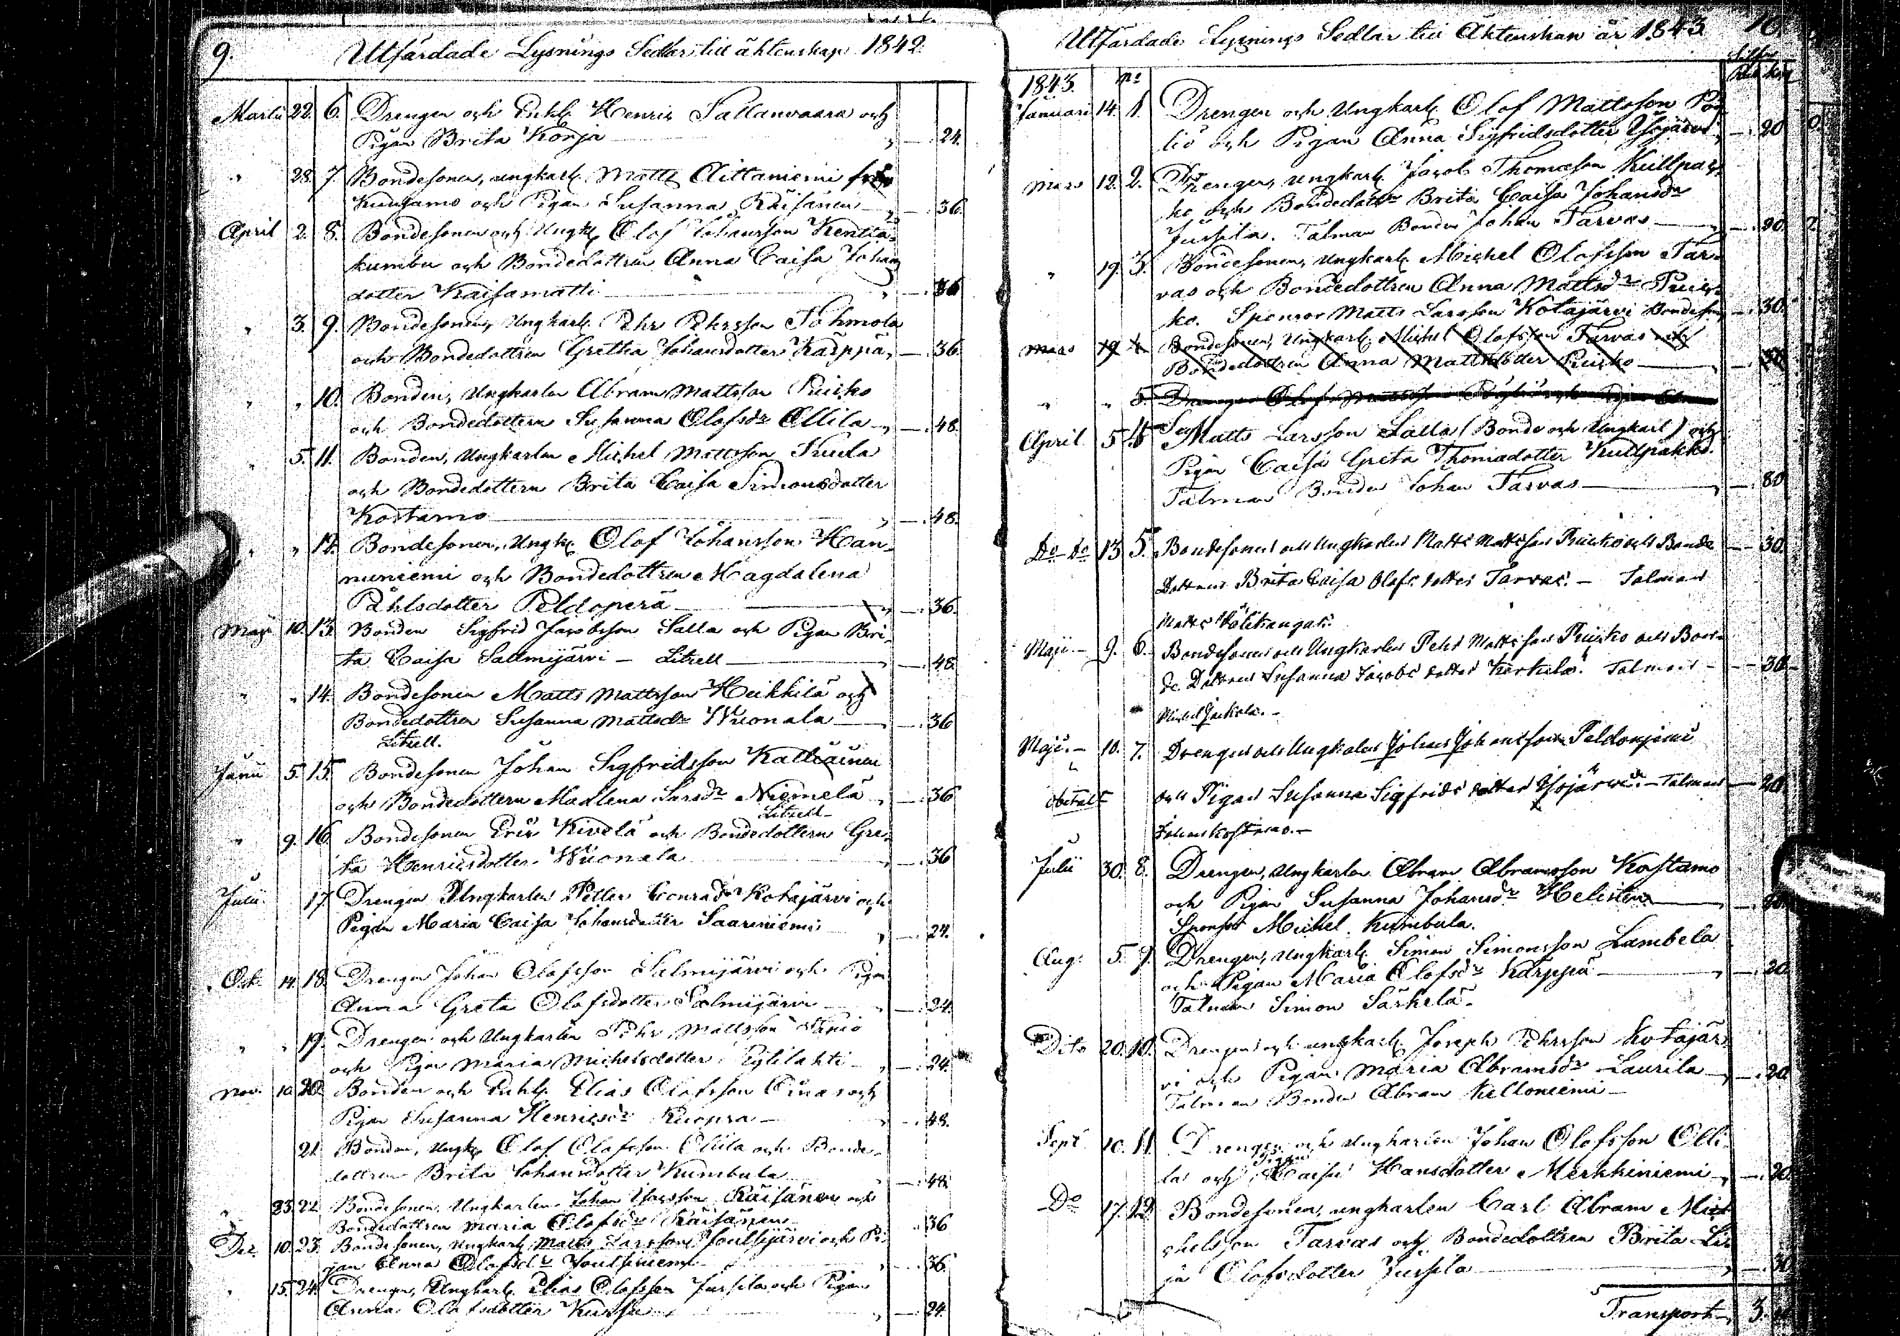 9. Utfärdade Lysnings Sedlar till äktenskap 1842.
Martii 22. 6. Drengen och Enkl. Henric Sallanvaara och
Pigan Brita Korja 24.
" 28. 7. Bondesonen, ungkarl. Matts Aittaniemi från
Kuusamo och Pigan Susanna Räisänen 36.
April 2. 8. Bondesonen och Ungk. Olof Johansson Kenttä-
kumbu och Bondedottren Anna Caisa Johans
dotter Kaisamatti 36
" 3. 9. Bondesonen, Ungkarl. Pehr Pehrsson Tohmola
och Bondedottren Gretha Johansdotter Karppa, 36.
" " 10. Bonden, Ungkarlen Abram Mattsson Puisko
och Bondedottern Susanna Olofsdr Ollila 48.
" 5. 11. Bonden, Ungkarlen Michel Mattsson Kuula
och Bondedottern Brita Caisa Simonsdotter
Kostamo 48.
" " 12. Bondesonen, Ungk. Olof Johansson Hän-
nuniemi och Bondedottren Magdalena
Påhlsdotter Peldoperä 36.
Maji 10. 13. Bonden Sigfrid Jacobsson Salla och Pigan Bri-
ta Caisa Salmijärvi - Litzell 48.
" " 14. Bondesonen Matts Mattsson Heikkilä och
Bondedottren Susanna Mattsdr Wuonala 36
Litzell.
Junii 5. 15. Bondesonen Johan Sigfridsson Kalliainen
och Bondedottern Madlena Larsdr Niemelä 36
Litzell
" 9. 16. Bondesonen Eric Kivelä och Bondedottern Gre-
ta Henricsdotter Wuonala 36
Julii. 17. Drengen Ungkarlen Petter Conradss. Kotajärvi och
Pigan Maria Caisa Johansdotter Saariniemi 24.
Oct. 14. 18. Drengen Johan Olofsson Salmijärvi och Pigan
Anna Greta Olofsdotter Salmijärvi 24.
" " 19. Drengen och Ungkarlen Pehr Mattsson
och Pigan Maria Michelsdotter 24.
Nov. 10. 20. Bonden och Enkl. Elias Olofsson Oinas och
Pigan Susanna Henricsdr Kuopsa 48.
21. Bonden, Ungk. Olof Olofsson Ollila och Bonde-
dottren Brita Johansdotter Kumbula 48.
" 23. 22. Bondesonen, Ungkarlen Johan Larsson Räisänen och
Bondedottren Maria Olofsdr Räisänen 36
Dec. 10. 23. Bondesonen, Ungkarl. Matts Larsson Joutsijärvi och Pi-
gan Anna Olofsdr Joutsiniemi 36
" 15. 24. Drengen, Ungkarl. Elias Olofsson Jussila och Pigan
Anna Olofsdotter Kursu 24.
Utfärdade Lysnings Sedlar till Äktenskap år 1843. 10.
1843. No
Januari 14. 1. Drengen och Ungkarl. Olof Mattsson Pöy
liö och Pigan Anna Sigfridsdotter Ysojärvi 20
Mars 12. 2. Drengen, ungkarl. Jacob Thomasson Kullpak-
ko och Bondedottr Brita Caisa Johansdr
Jussila. Talman Bonden Johan Tarvas 20.
" 19. 3. Bondesonen, Ungkarl. Michel Olofsson Tar-
vas och Bondedottren Anna Mattsdr Puis-
ko. Sponsor Matts Larsson Kotajärvi Bondeson 30.
Mars 19 4 Bondesonen, Ungkarl. Michel Olofsson Tarvas och
Bondedottren Anna Mattsdotter Puisko 30
" " 5.
April 5 4 Matts Larsson Salla (Bonde och Ungkarl) och
Pigan Caisa Greta Thomadotter Kullpakko.
Talman Bonden Johan Tarvas 80
Do Do 13 5. Bondesonen och Ungkarlen Matts Mattsson Puisko och Bonde 30.
Dottren Brita Caisa Olofs dotter Tarvas. - Talman
Matts
Maji 9. 6. Bondesonen och Ungkarlen Pehr Mattsson Puisko och Bon-
de Dottren Susanna Jacobs dotter Kerkelä. Talman 30.
Michel
Maji. 10. 7. Drengen och Ungkarlen Johan Johansson Peldoniemi
obetalt och Pigan Susanna Sigfrids dotter Ysojärvi. - Talman 20
Johan Kostamo.
Julii 30. 8. Drengen, Ungkarlen Abram Abramsson Kostamo
och Pigan Susanna Johansdr Helisten 20.
Sponsor Michel Kumbula.
Aug. 5. 9. Drengen, Ungkarl. Simon Simonsson Lambela
och Pigan Maria Olofsdr Karppa 20.
Talman Simon Särkelä.
Dito 20. 10. Drengen och ungkarl. Joseph Pehrsson Kotajär-
vi och Pigan Maria Abramsdr Laurila 20.
Talman Bonden Abram Kelloniemi
Sept 10. 11. Drengen och Ungkarlen Johan Olofsson Olli-
la och Pigan Caisa Hansdotter Merkkiniemi 20.
Do 17. 12. Bondesonen, ungkarlen Carl Abram Mic-
chelsson Tarvas och Bondedottren Brita Li-
ja Olofsdotter Jussila 30
Transport 3.